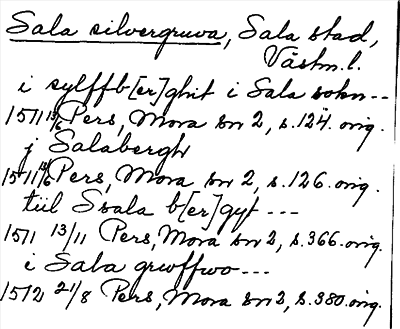 Sala silvergruva, Sala stad,
Västm.l.
i sylffb[er]ghit i Sala sokn--
1511 13/6 Pers, Mora sn 2, s.124. orig.
j Salabergh
1511 13/6 Pers, Mora sn 2, s.126. orig.
tiil Ssala b[er]gyt ---
1511 13/11 Pers, Mora sn 2, s.366. orig.
i Sala grwffwo---
1512 21/8 Pers, Mora sn 3, s.380. orig.